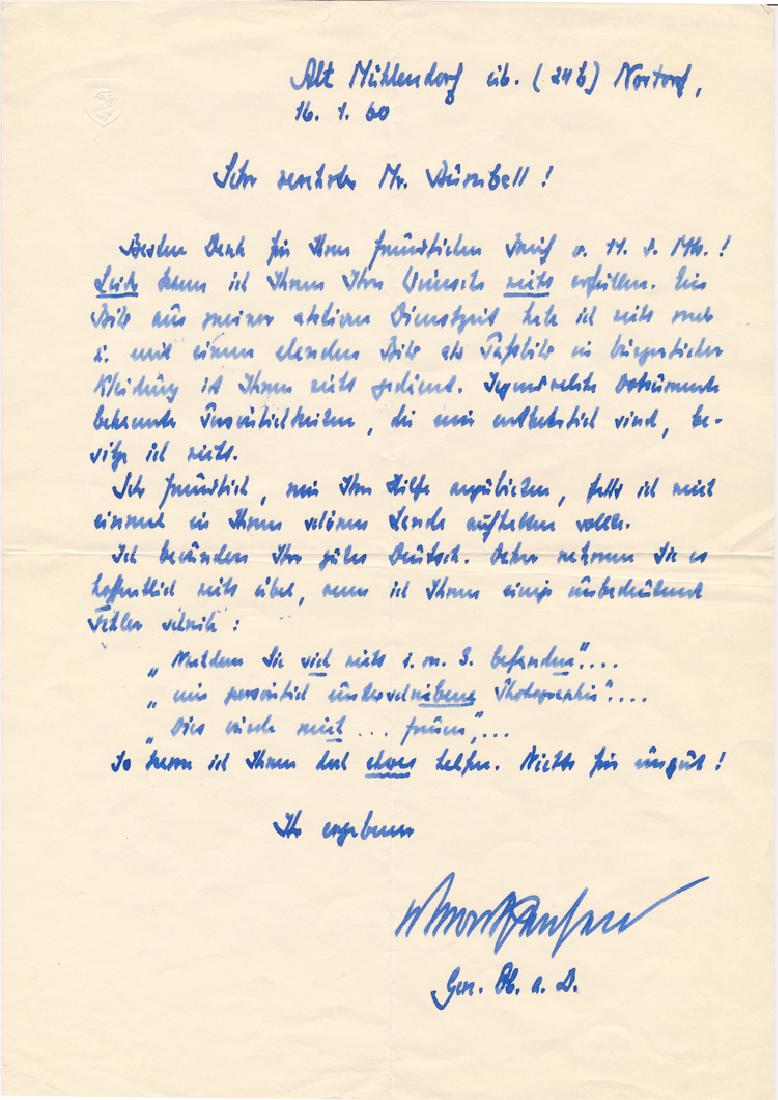 Alt Mühlendorf üb. (24b) Nortorf,
16. 1. 60
Sehr verehrter Mr.
Besten Dank für Ihren freundlichen Brief v. 11. d. Mts.!
Leider kann ich Ihnen Ihre Wünsche nicht erfüllen. Ein
Bild aus meiner aktiven Dienstzeit habe ich nicht mehr
u. mit einem elenden Bilde als Paßbild in bürgerlicher
Kleidung ist Ihnen nicht gedient. Irgendwelche Dokumente
bekannter Persönlichkeiten, die mir entbehrlich sind, be-
sitze ich nicht.
Sehr freundlich, mir Ihre Hilfe anzubieten, falls ich mich
einmal in Ihrem schönen Lande aufhalten sollte.
Ich bewundere Ihr gutes Deutsch. Daher nehmen Sie es
hoffentlich nicht übel, wenn ich Ihnen einige unbedeutende
Fehler schreibe:
„Nachdem Sie sich nicht i. m. S. befanden"....
„mir persönlich unterschriebene Photographie"....
„Dies würde mich ... freuen„...
So kann ich Ihnen doch etwas helfen. Nichts für ungut!
Ihr ergebener
Gen. Ob. a. D.